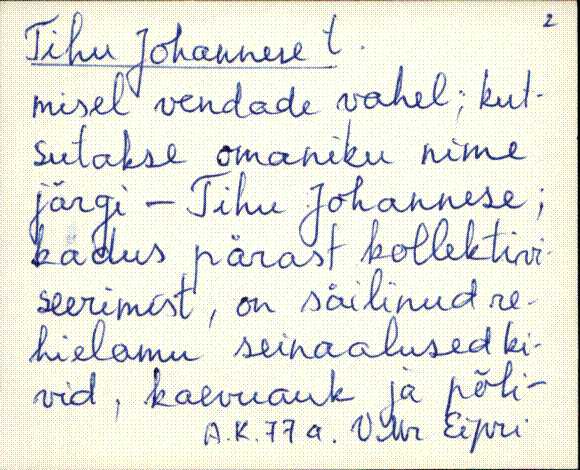 2
Tihu Johannese t.
misel vendade vahel; kut-
sutakse omaniku nime
järgi – Tihu Johannese;
kadus pärast kollektivi-
seerimist, on säilinud re-
hielamu seinaalused ki-
vid, kaevuauk ja põli-
A.K. 77 a.